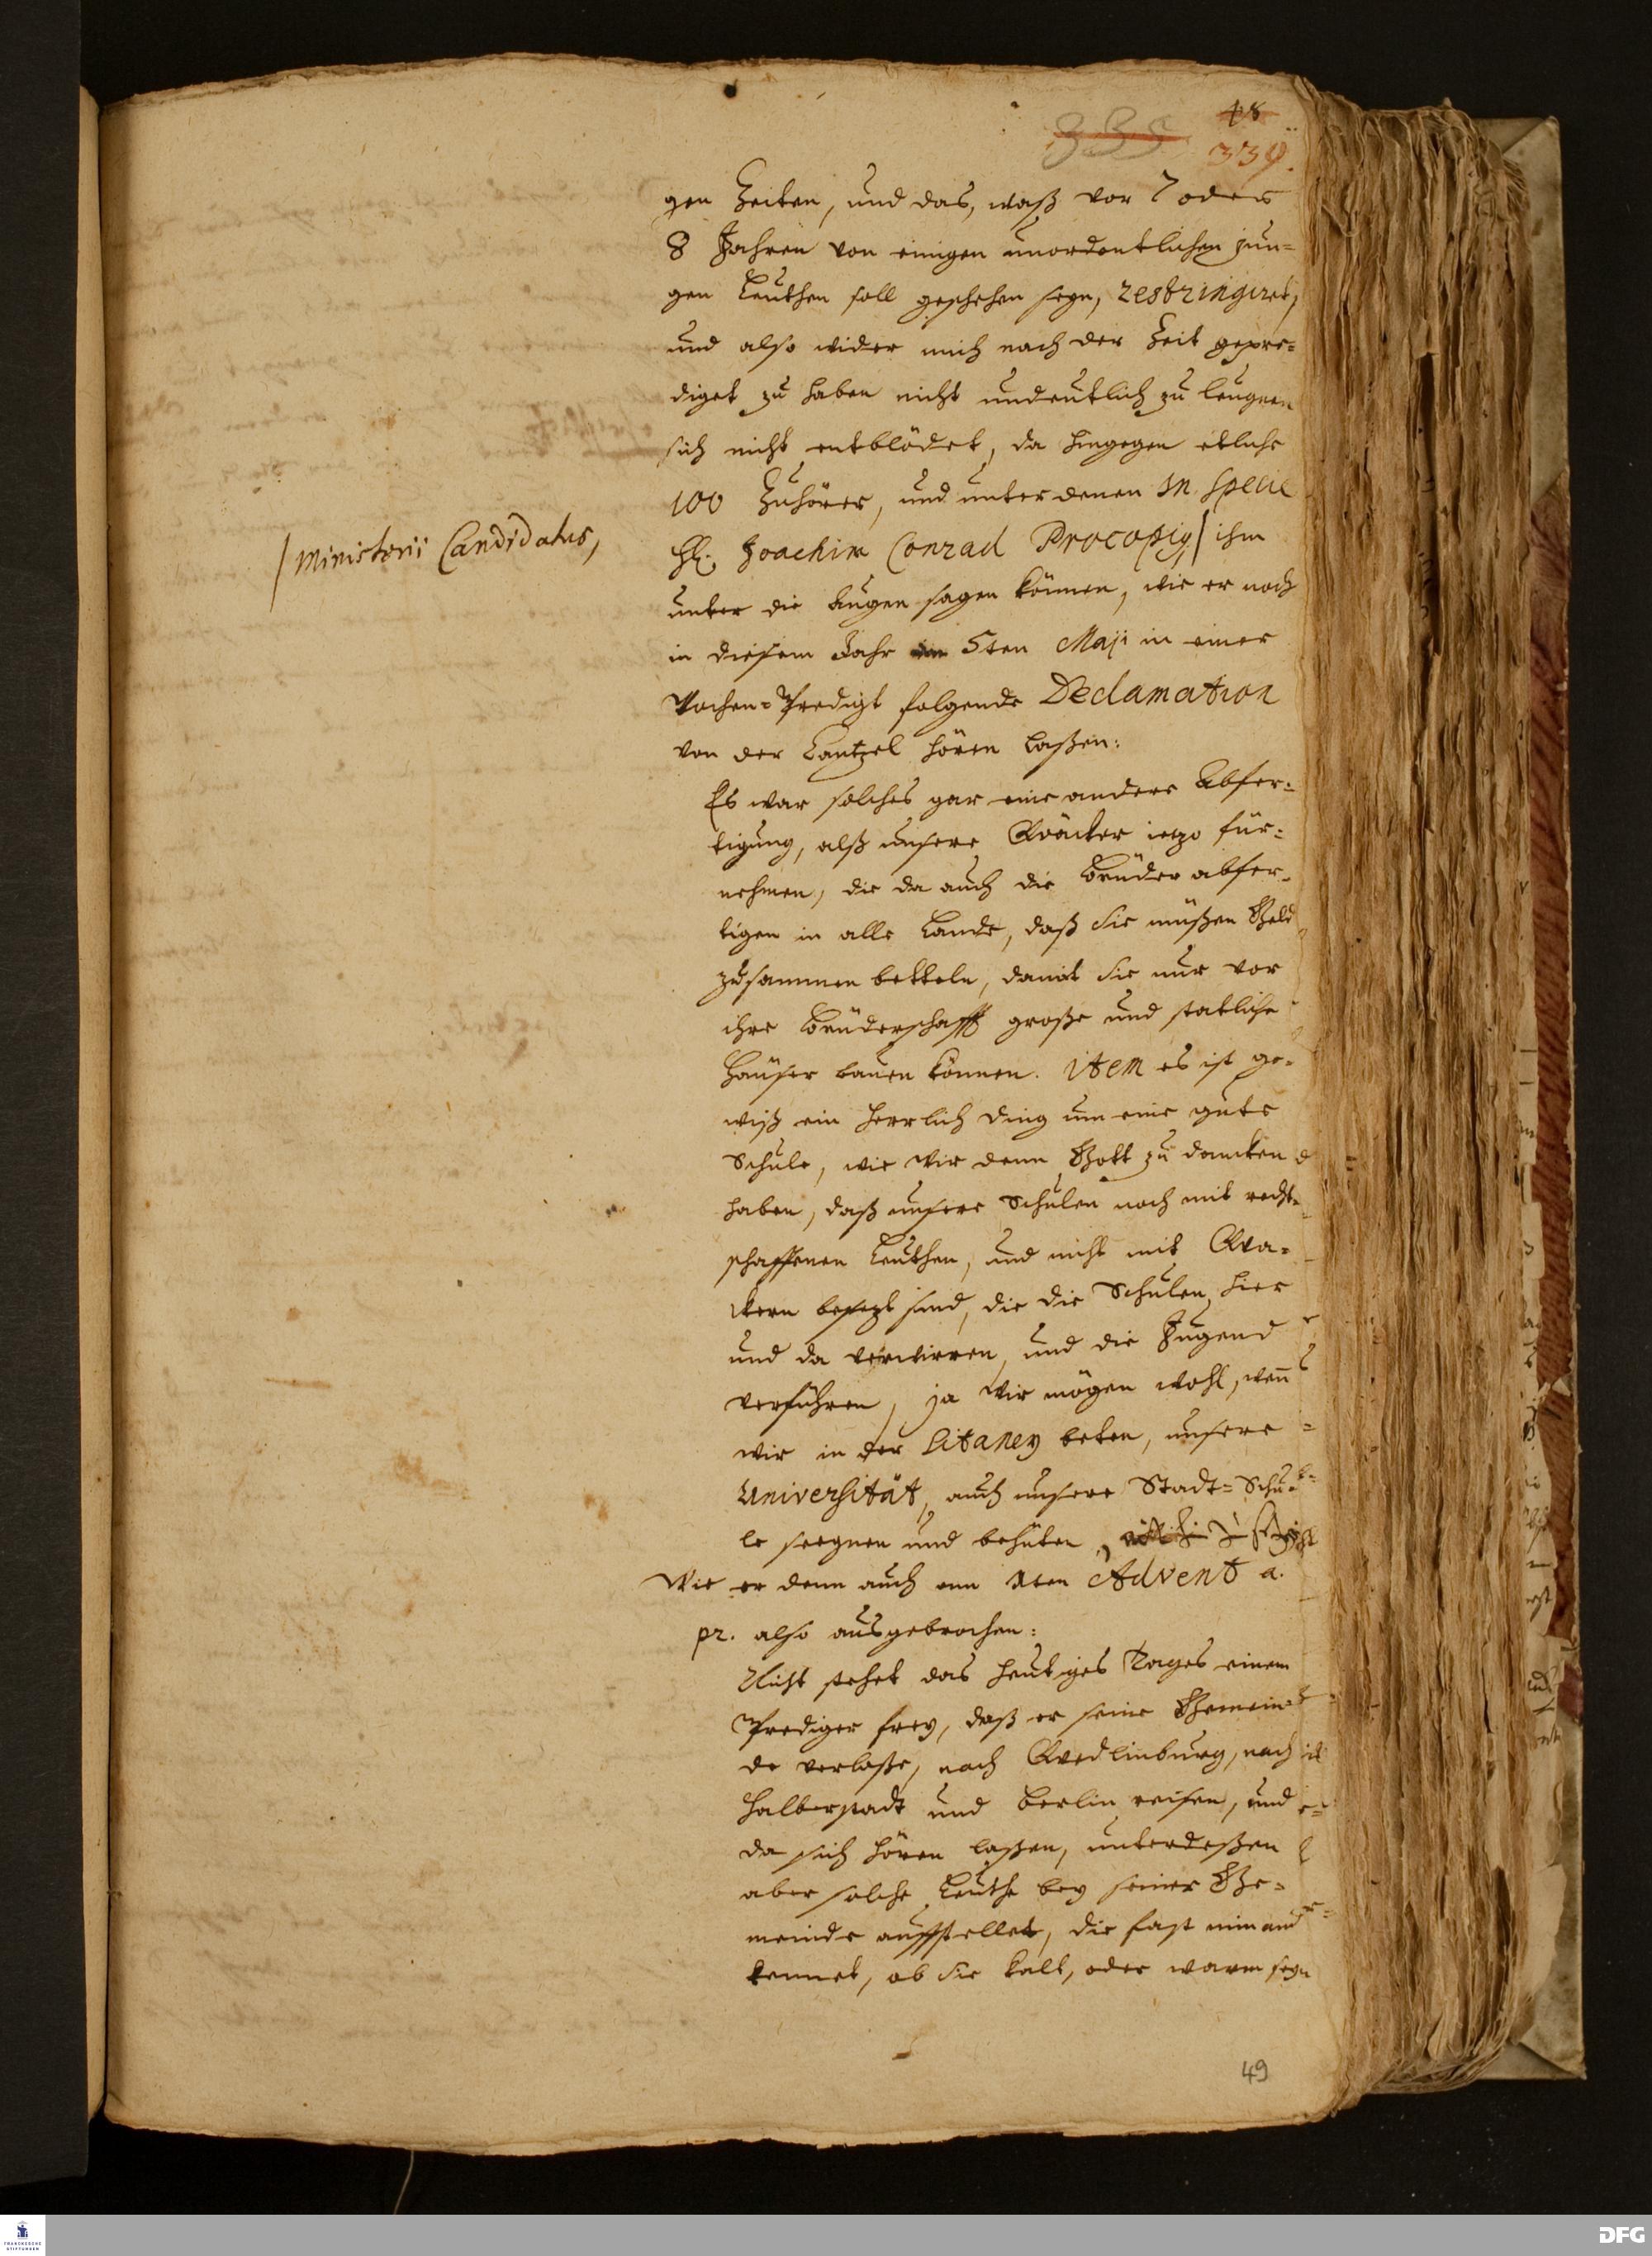 48
335
339.
gen Zeiten, und das, waß vor 7 oder
8 Jahren von einigen unordentlichen jun-
gen Leuthen soll geschehen seyn, restringiret,
und also wider mich nach der Zeit gepre-
diget zu haben nicht undeutlich zu leugnen
sich nicht entblödet, da hingegen etliche
100 Zuhörer, und unter denen in specie
H. Joachim Conrad Procopig / ihm
/ Ministerii Candidatus,
unter die Augen sagen können, wie er noch
in diesem Jahr den 5ten Maji in einer
Wochen-Predigt folgende Declamation
von der Cantzel hören laßen:
Es war solches gar eine andere Abfer-
tigung, alß unsere Qväcker ietzo für-
nehmen, die da auch die Brüder abfer-
tigen in alle Lande, daß sie müßen Geld
zusammen betteln, damit sie nur vor
ihre Brüderschafft große und statliche
Häuser bauen können. item es ist ge-
wiß ein herrlich Ding um eine gute
Schule, wie wir denn Gott zu dancken
haben, daß unsere Schulen noch mit recht-
schaffenen Leuthen, und nicht mit Qva-
ckern besezt sind, die die Schulen hier
und da verwirren, und die Jugend
verführen, ja wir mögen wohl, weñ
wir in der Litaney beten, unsere
Universität, auch unsere Stadt-Schu-
le seegnen und behüten,
Wie er denn auch am 1ten Advent a.
pr. also ausgebrochen:
Nicht stehet das heutiges Tages einem
Prediger frey, daß er seine Gemein-
de verlaße, nach Qvedlinburg, nach
Halberstadt und Berlin reisen, und
da sich hören laßen, unterdeßen
aber solche Leuthe bey seiner Ge-
meinde auffstellet, die fast nimand
kennet, ob sie kalt, oder warm seyn
49
FRANCKESCHE STIFTUNGEN
DFG